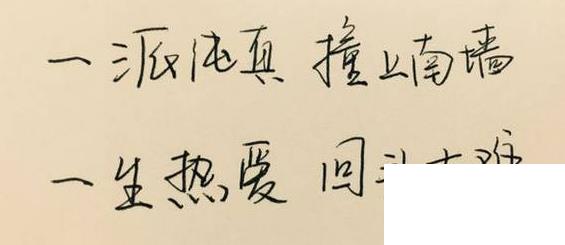 一派纯真 撞上南墙
一生热爱 回